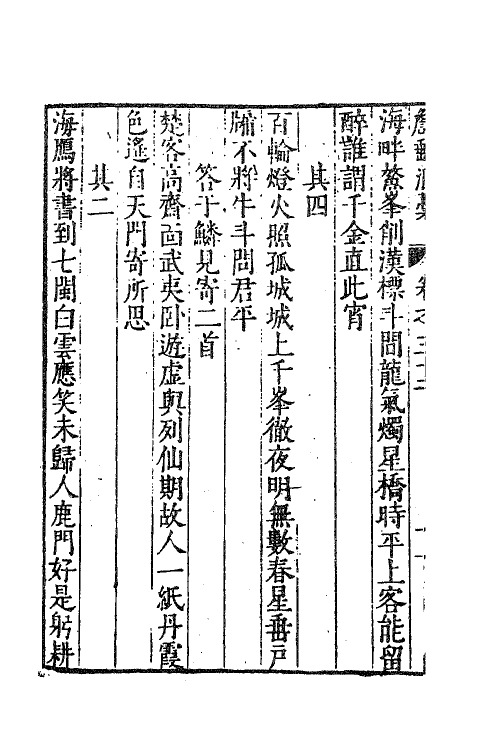 海畔鰲峯削漢標斗間龍氣燭星橋時平上客能留
醉誰謂千金直此宵
其四
百輪燈火照孤城城上千峯徹夜明無數春星垂戸
牖不將牛斗問君平
答于鱗見寄二首
楚客高齋面武夷卧遊虛與列仙期故人一紙丹霞
色遙自天門寄所思
其二
海鴈將書到七閩白雲應笑未歸人鹿門好是躬耕